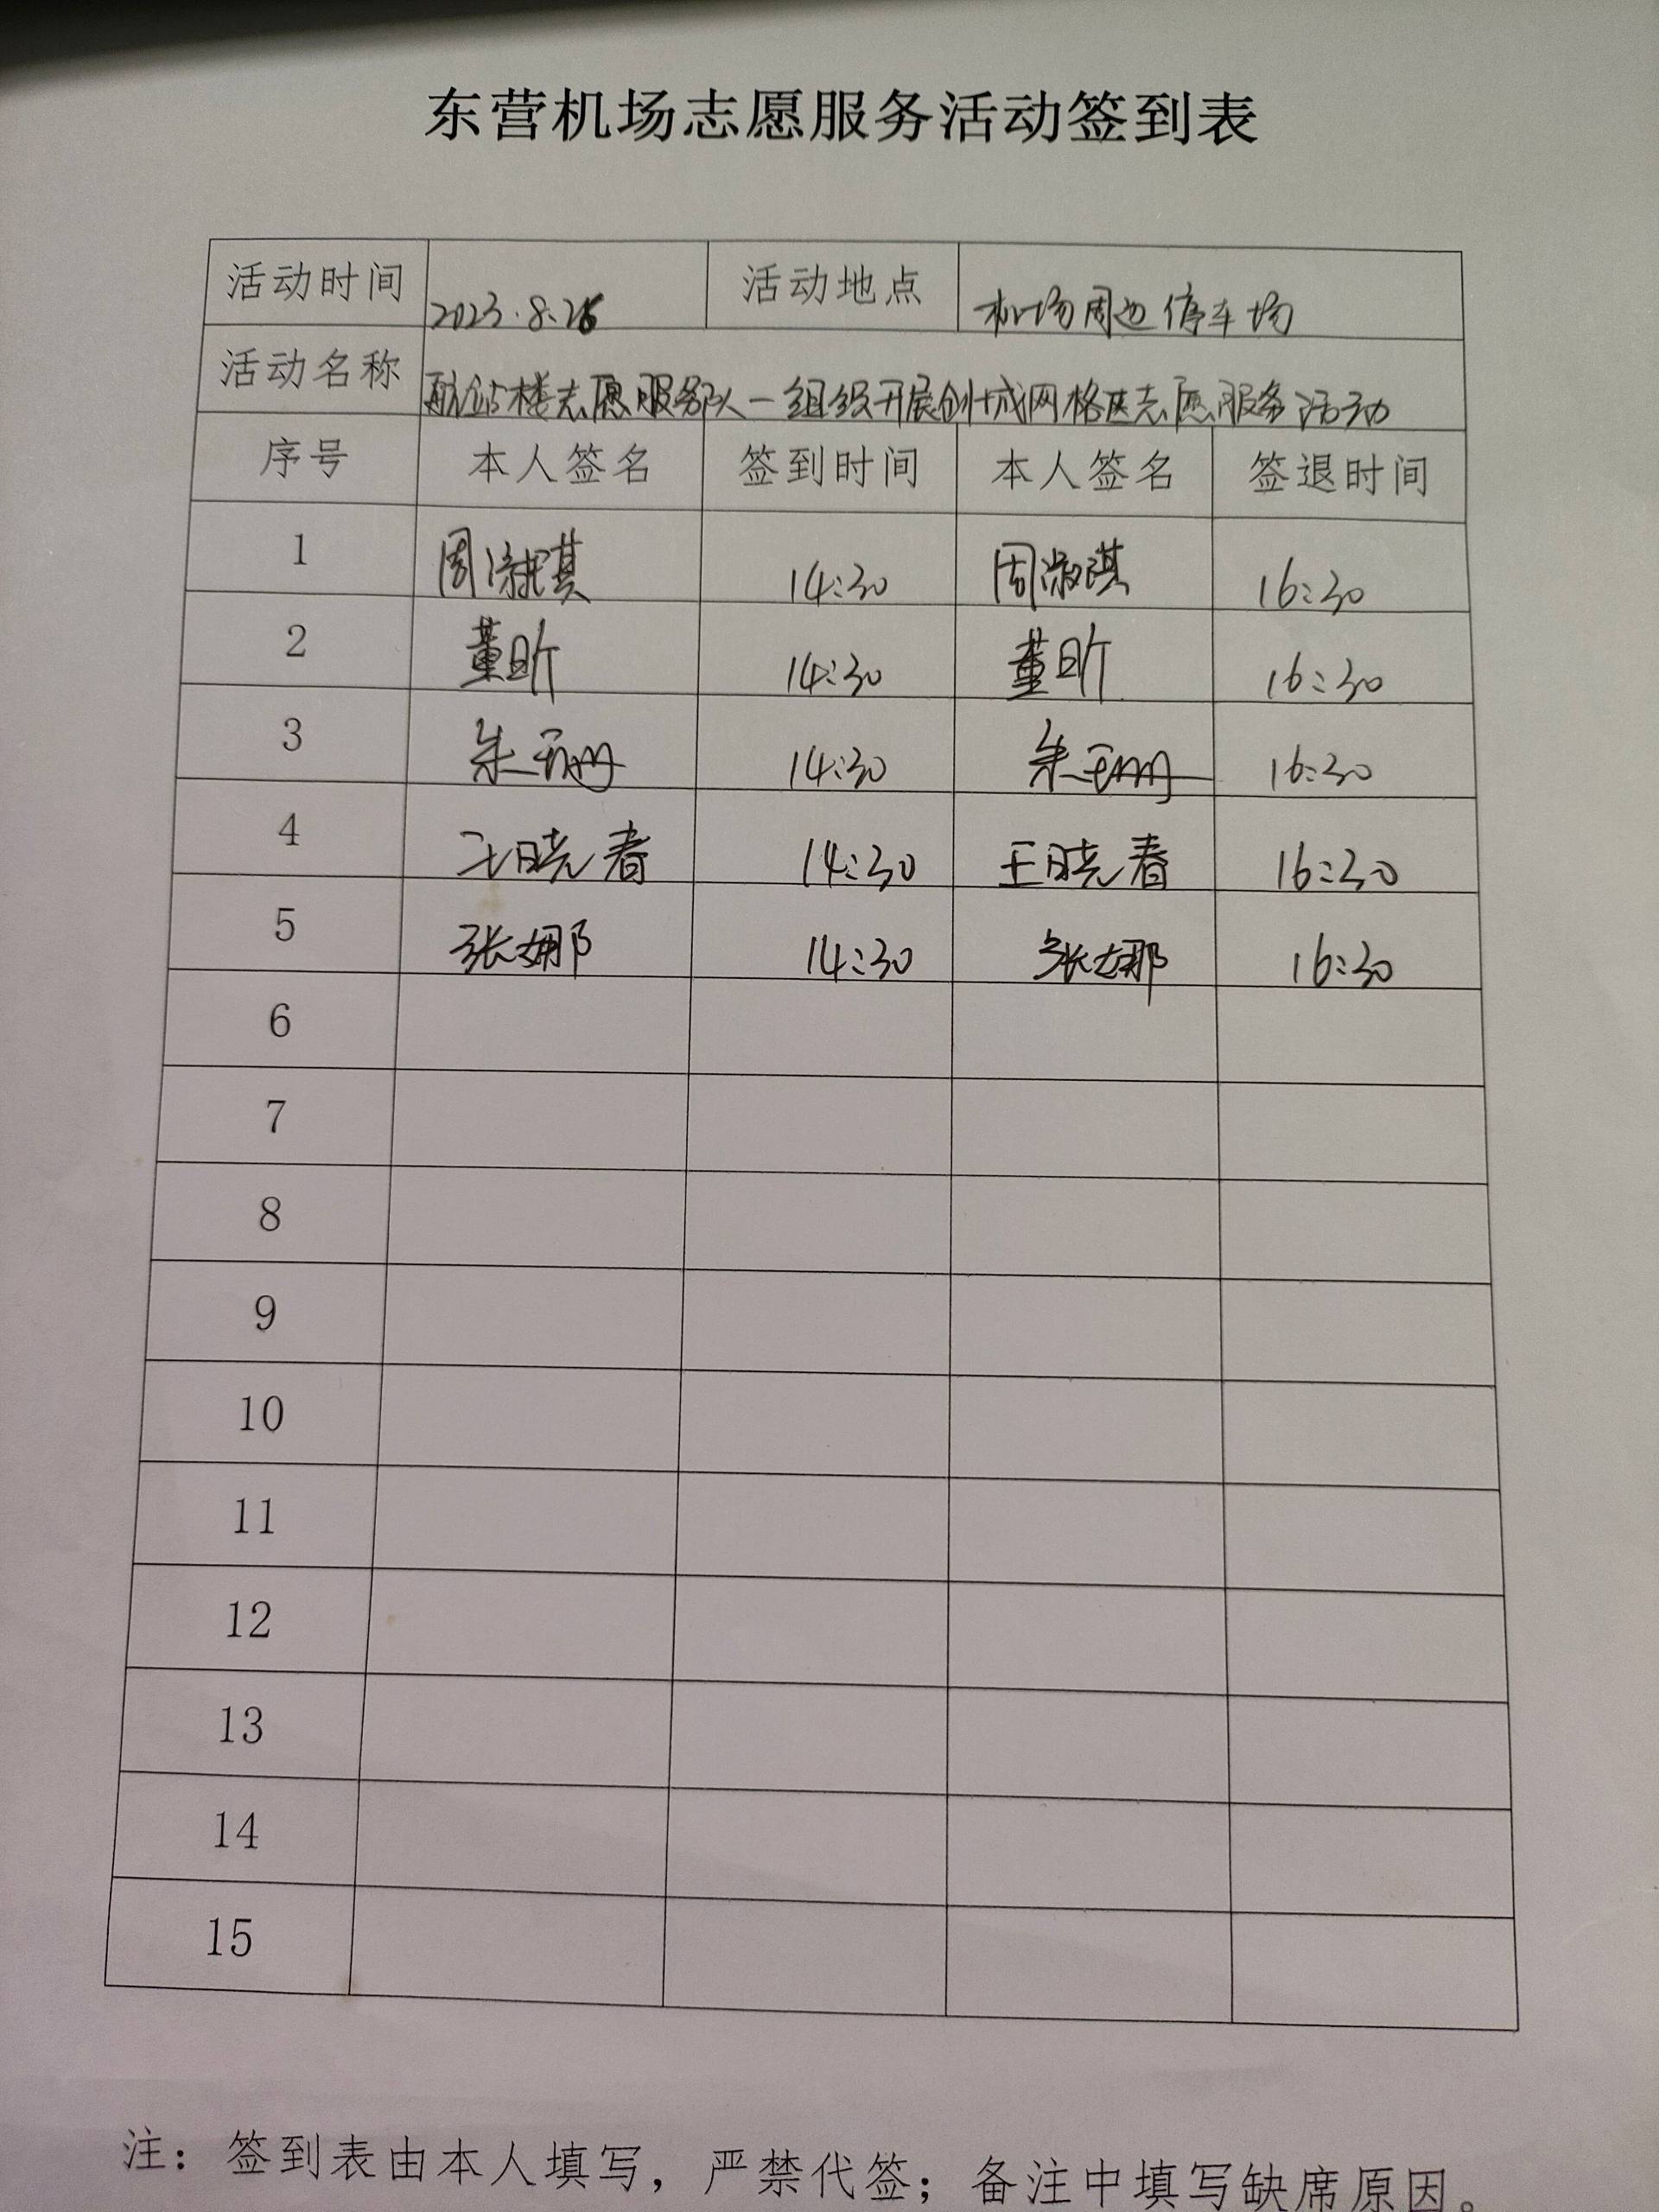 东营机场志愿服务活动签到表
活动时间 2023.8.26 活动地点 机场周边停车场
活动名称 航站楼志愿服务队一组织开展创城网格区志愿服务活动
序号 本人签名 签到时间 本人签名 签退时间
1 周淑琪 14:30 周淑琪 16:30
2 董昕 14:30 董昕 16:30
3 朱 14:30 朱 16:30
4 王晓春 14:30 王晓春 16:30
5 张娜 14:30 张娜 16:30
6
7
8
9
10
11
12
13
14
15
注：签到表由本人填写，严禁代签；备注中填写缺席原因。